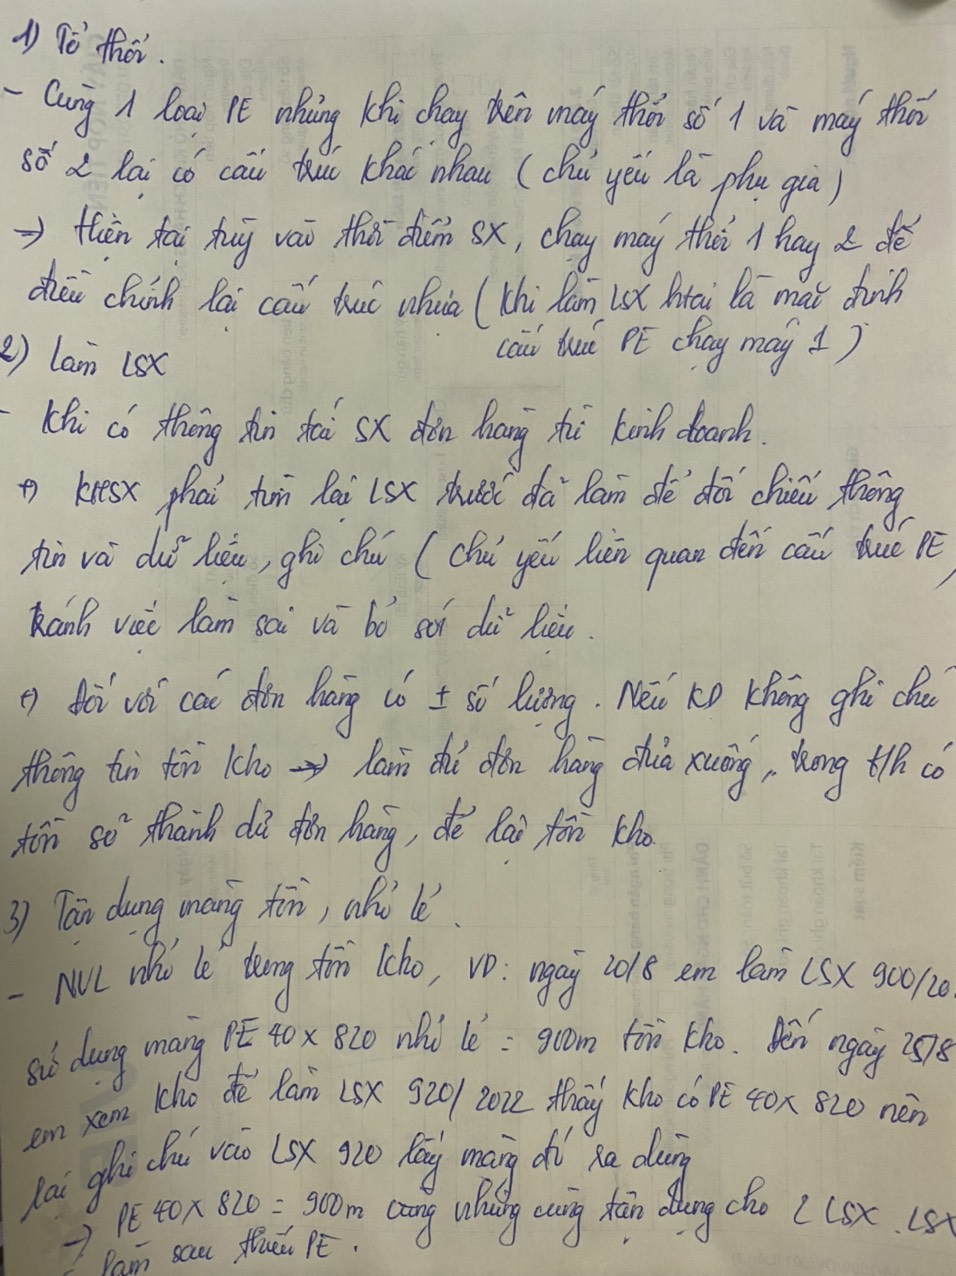 1) Tổ thổi.
- Cùng 1 loại PE nhưng khi chạy trên máy thổi số 1 và máy thổi
số 2 lại có cấu trúc khác nhau (chủ yếu là phụ gia)
→ Hiện tại tùy vào thời điểm SX, chạy máy thổi 1 hay 2 để
điều chỉnh lại cấu trúc nhựa (khi làm LSX htại là mặc định
cấu trúc PE chạy máy 1)
2) Làm LSX
- Khi có thông tin tái SX đơn hàng từ kinh doanh.
+) KHSX phải tìm lại LSX trước đã làm để đối chiếu thông
tin và dữ liệu, ghi chú (chủ yếu liên quan đến cấu trúc PE,
tránh việc làm sai và bỏ sót dữ liệu.
+) Đối với các đơn hàng có ± số lượng. Nếu KD không ghi chú
thông tin tồn kho → làm đủ đơn hàng đưa xuống, trong t/h có
tồn sẽ thành dư đơn hàng, để lại tồn kho.
3) Tận dụng màng tồn, nhỏ lẻ.
- NVL nhỏ lẻ trong tồn kho, VD: ngày 20/8 em làm LSX 900/20
sử dụng màng PE 40 x 820 nhỏ lẻ = 900m tồn kho. Đến ngày 25/8
em xem kho để làm LSX 920/2022 thấy kho có PE 40 x 820 nên
lại ghi chú vào LSX 920 lấy màng đó ra dùng
→ PE 40 x 820 = 900m nhưng cùng tận dụng cho 2 LSX. LSX
làm sau thiếu PE.